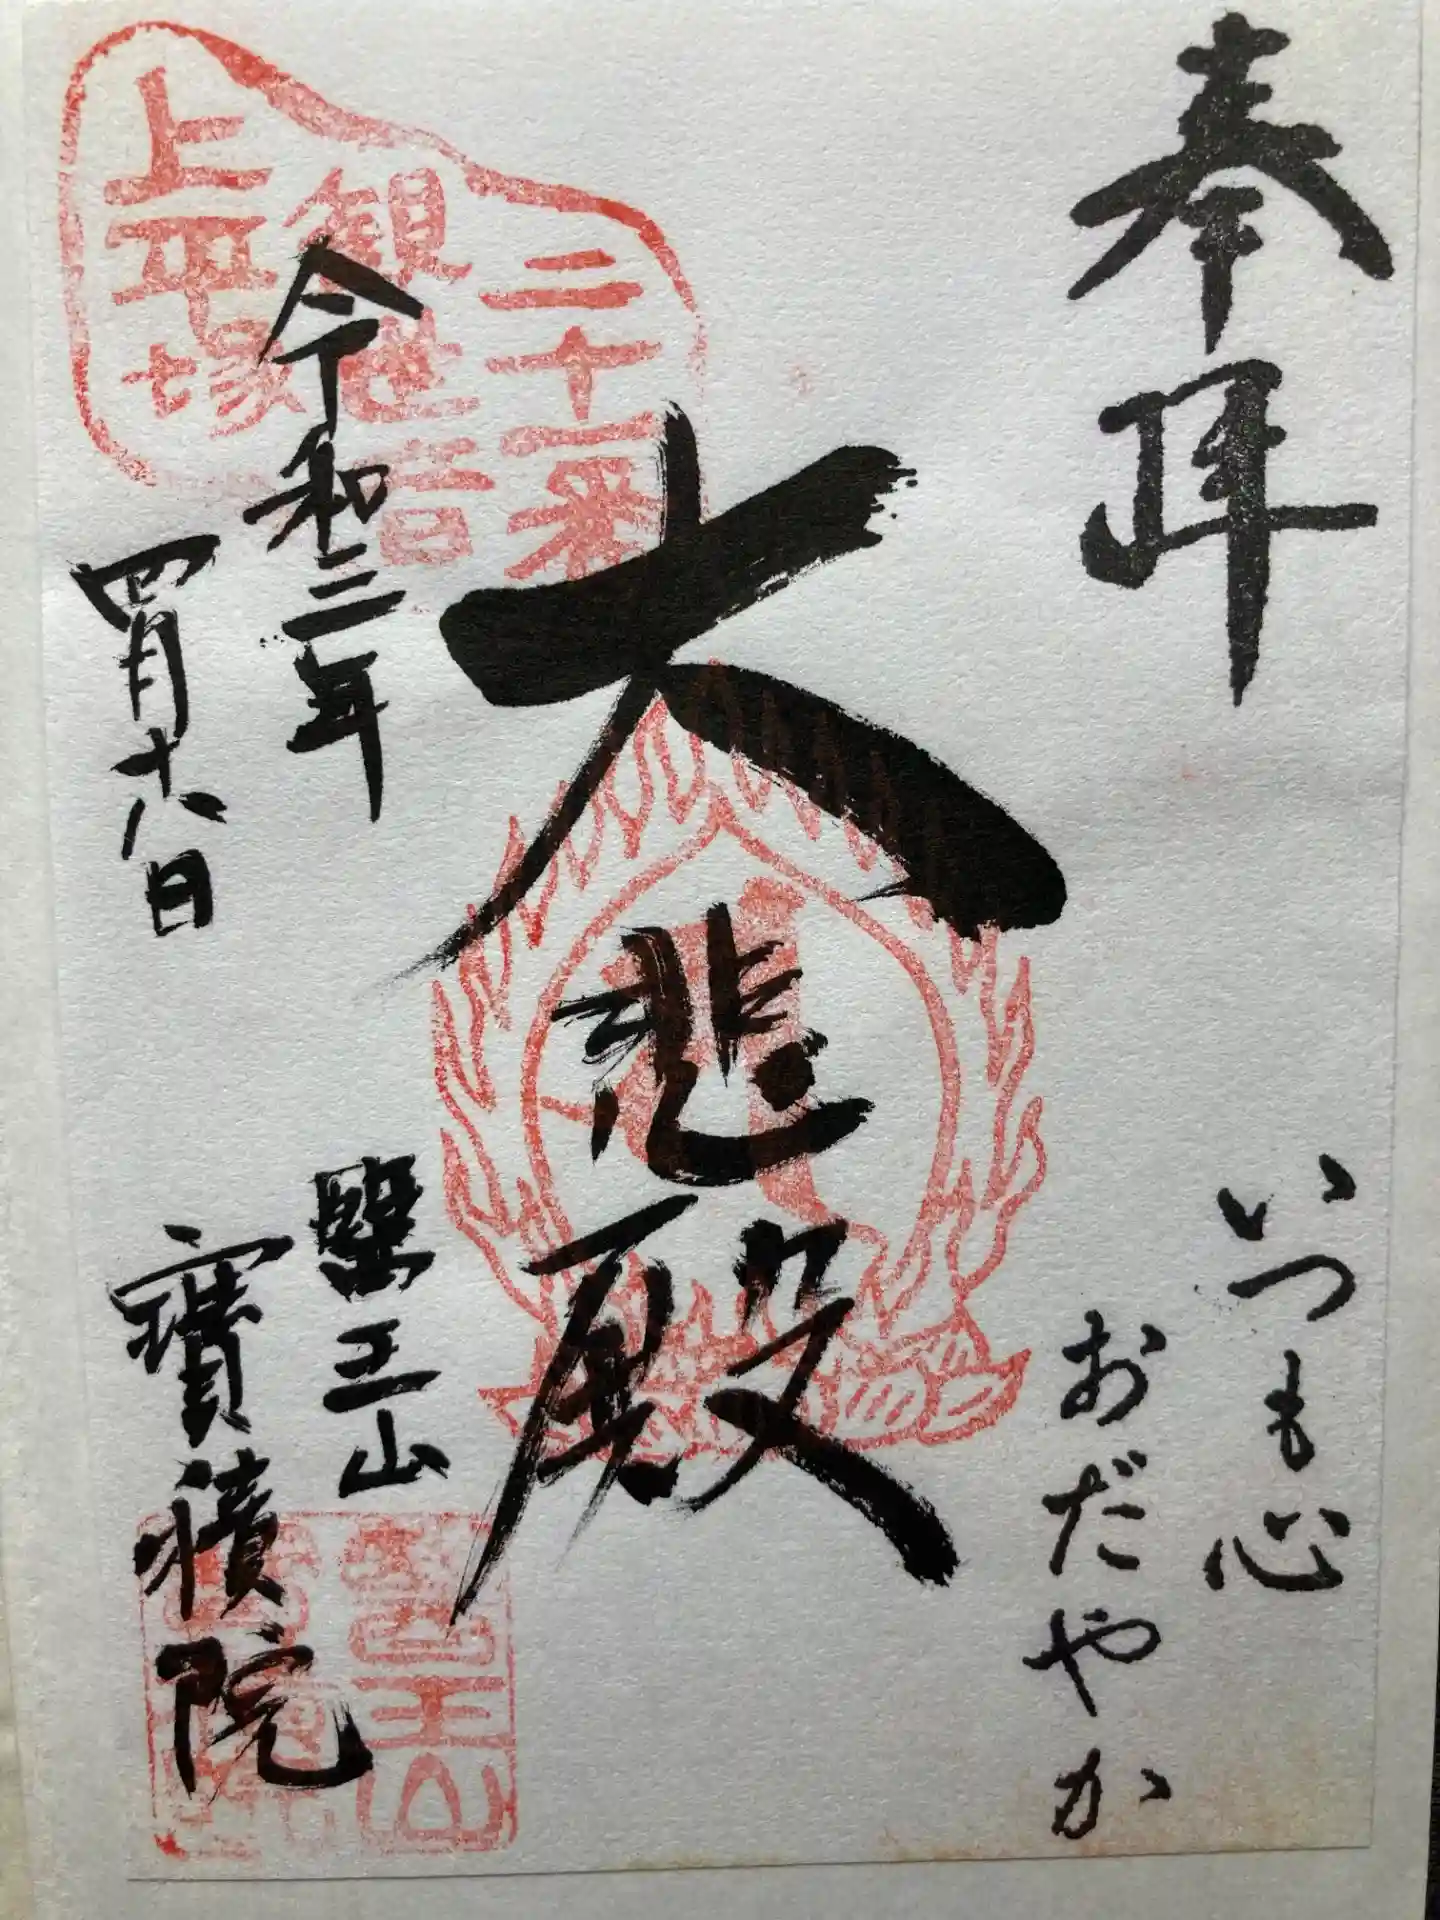 奉拝
いつも心
おだやか
大悲殿
二十一番
観世音
上平塚
令和三年
四月十八日
毉王山
寶積院